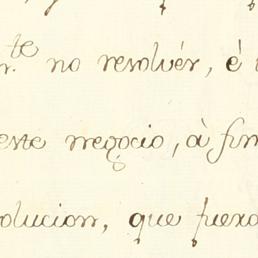 r.te no resolvér, é
este negocio, à fin
olucion, que fuera